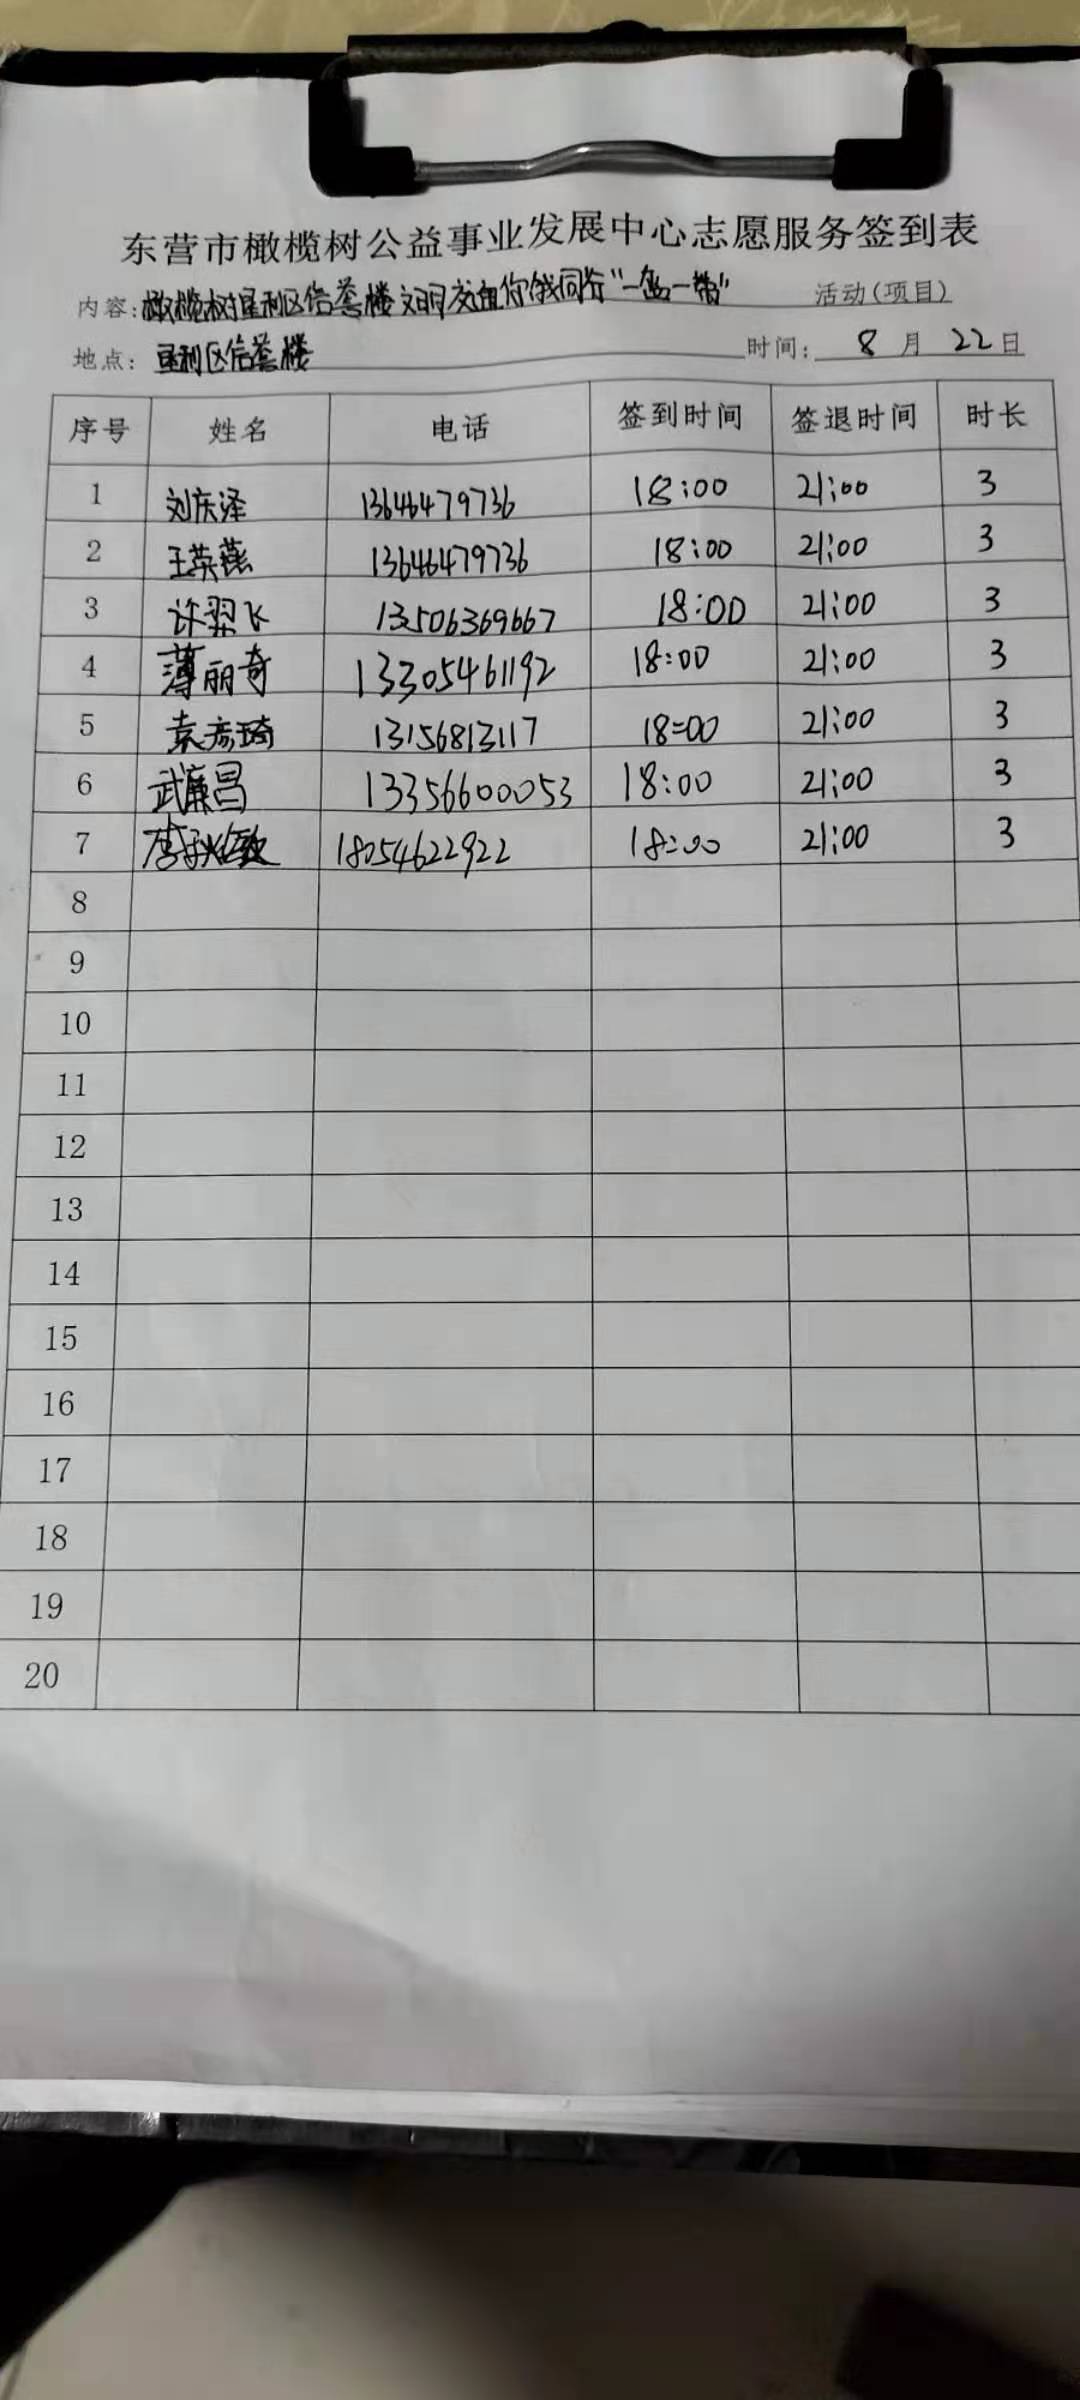 东营市橄榄树公益事业发展中心志愿服务签到表
内容:橄榄树垦利区信誉楼文明交通你我同行“一盔一带” 活动(项目)
地点:垦利区信誉楼 时间: 8 月 22 日
序号 姓名 电话 签到时间 签退时间 时长
1 刘庆泽 13646479736 18:00 21:00 3
2 王英燕 13646479736 18:00 21:00 3
3 许翠飞 13506369667 18:00 21:00 3
4 薄丽奇 13305461192 18:00 21:00 3
5 袁彦琦 13156813117 18:00 21:00 3
6 武廉昌 13356600053 18:00 21:00 3
7 李秋敏 18054622922 18:00 21:00 3
8
9
10
11
12
13
14
15
16
17
18
19
20